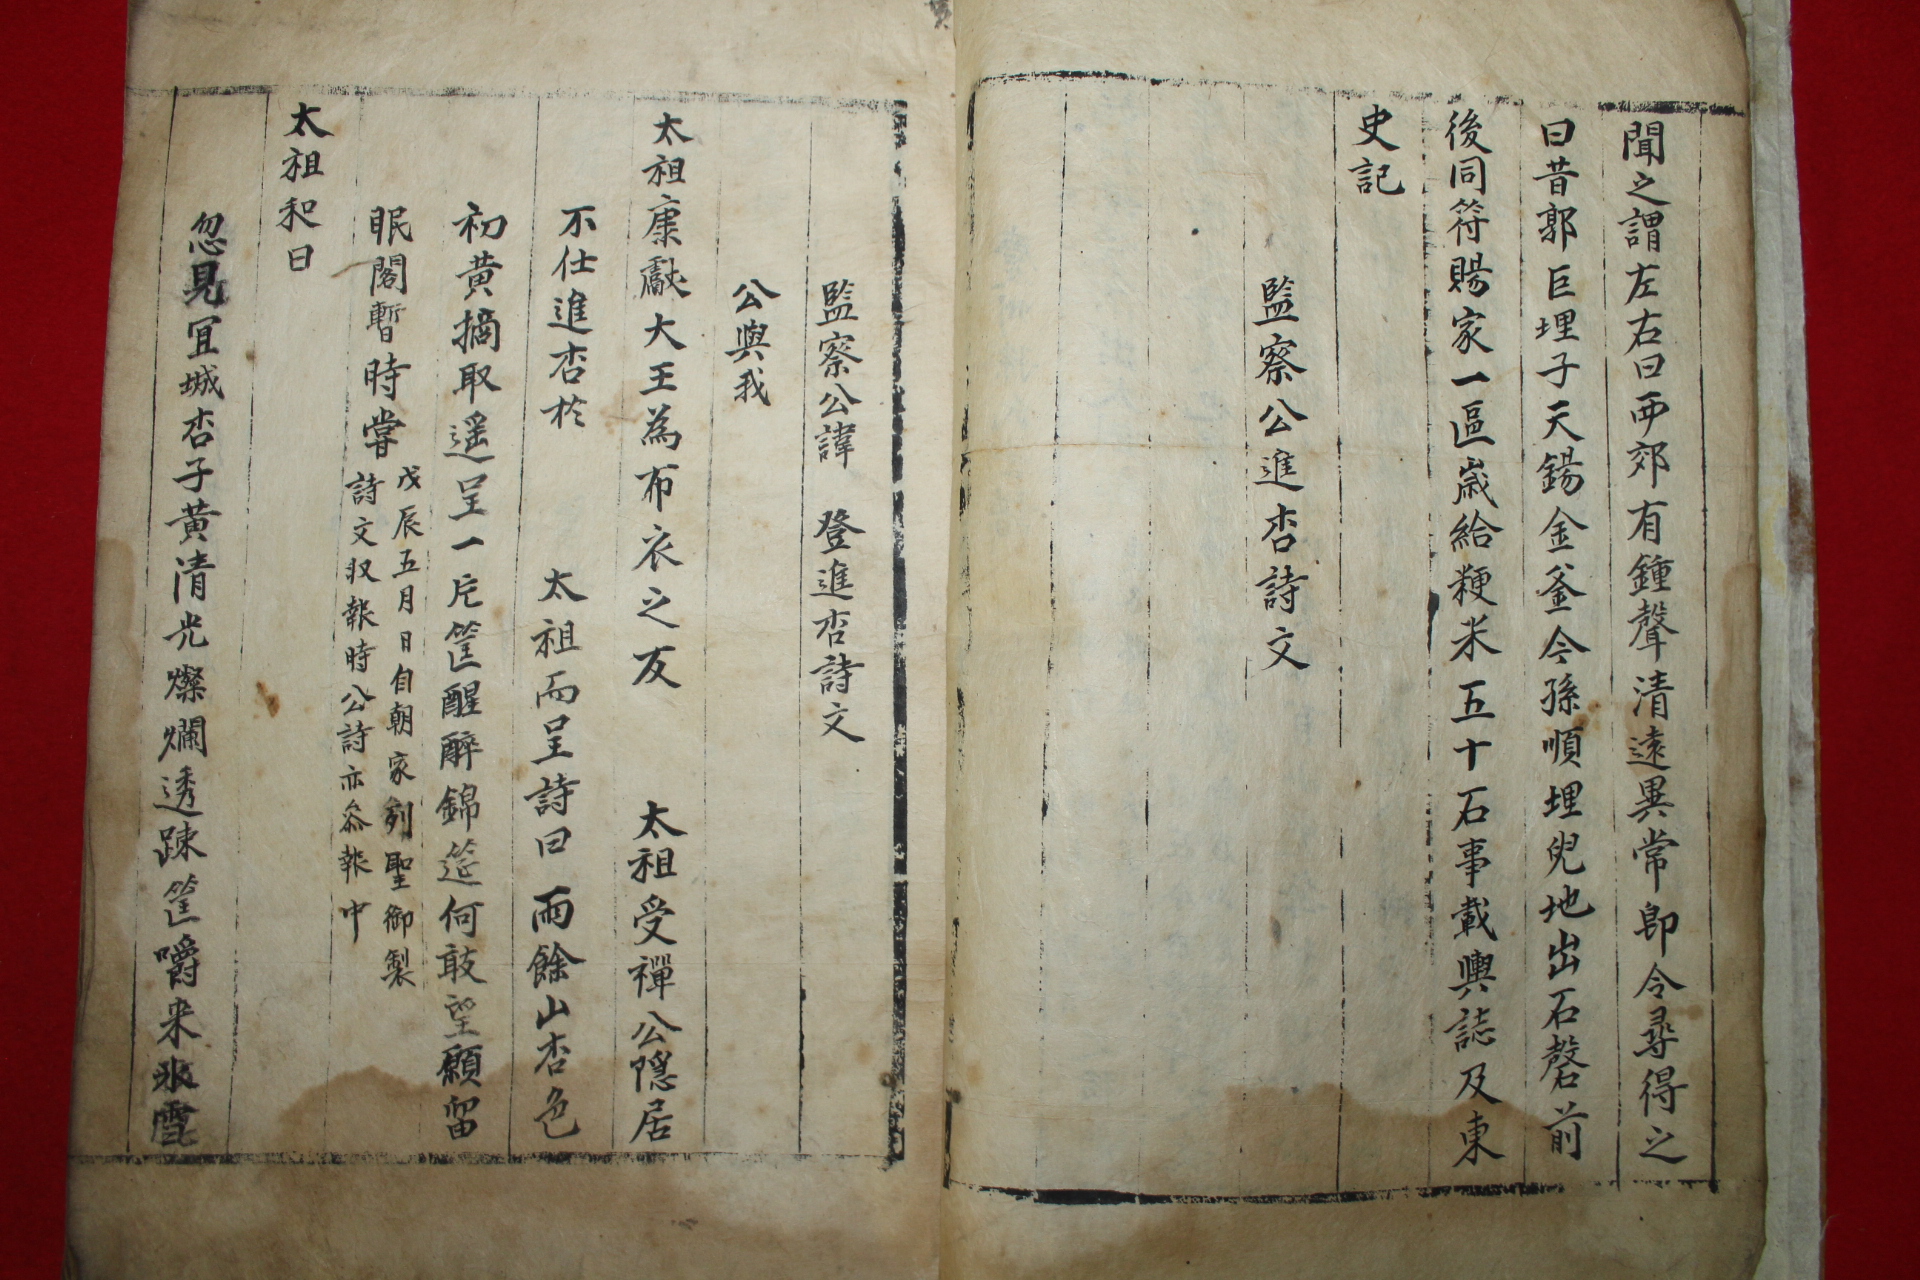 聞之謂左右曰西郊有鍾聲清遠異常即令尋得之
曰昔郭巨埋子天錫金釜今孫順埋兒地出石磬前
後同符賜家一區歲給粳米五十石事載輿誌及東
史記
監察公進杏詩文
監察公諱 登進杏詩文
公與我
太祖康獻大王為布衣之友 太祖受禪公隱居
不仕進杏於 太祖而呈詩曰雨餘山杏色
初黃摘取遥呈一片筐醒醉錦筵何敢望願留
眠閣暫時嘗
戊辰五月日自朝家列聖御製
詩文収報時公詩亦叅報中
太祖和曰
忽見宜城杏子黃清光燦爛透踈筐嚼来氷雪